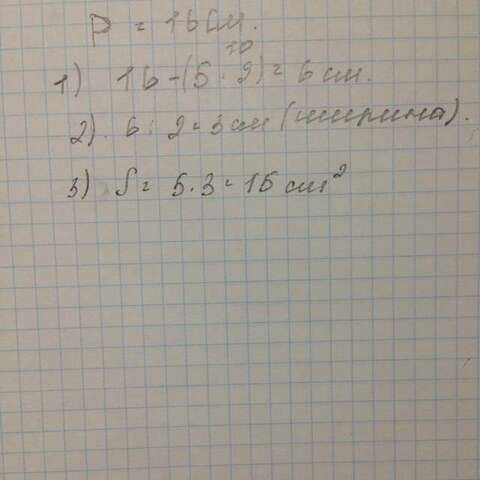 P = 16 см.
10
1) 16-(5·2)=6 см.
2) 6:2=3 см (ширина).
3) S= 5·3=15 см²